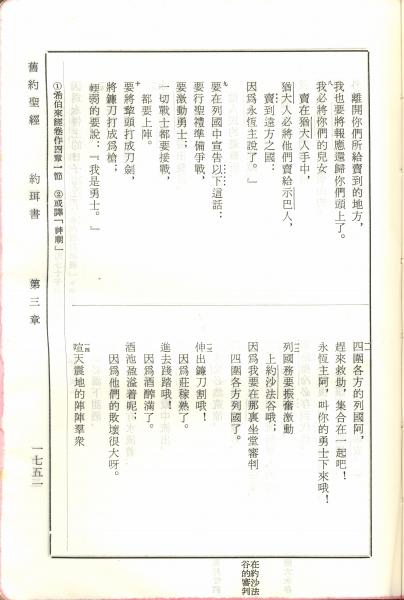 離開你們所給賣到的地方，
我也要將報應還歸你們頭上了。
八我必將你們的兒女
賣在猶大人手中，
猶大人必將他們賣給示巴人，
賣到遠方之國：
因爲永恒主說了。」
九要在列國中宣告以下這話：
要行聖禮準備爭戰，
要激動勇士；
一切戰士都要接戰，
都要上陣。
要將犂頭打成刀劍，
將鐮刀打成爲槍；
輭弱的要說：『我是勇士。』
一一四圍各方的列國阿，
趕來救助，集合在一起吧！
永恒主阿，叫你的勇士下來哦！
一二列國務要振奮激動
上約沙法谷哦；
因爲我要在那裏坐堂審判
四圍各方列國了。
一三伸出鐮刀割哦！
因爲莊稼熟了。
進去踐踏哦！
因爲酒醡滿了。
酒池盈溢着呢；
因爲他們的敗壞很大呀。
一四喧天震地的陣陣羣衆
在約沙法
谷的審判
①希伯來經卷作四章一節 ②或譯「神廟」
舊約聖經 約珥書 第三章 一七五一